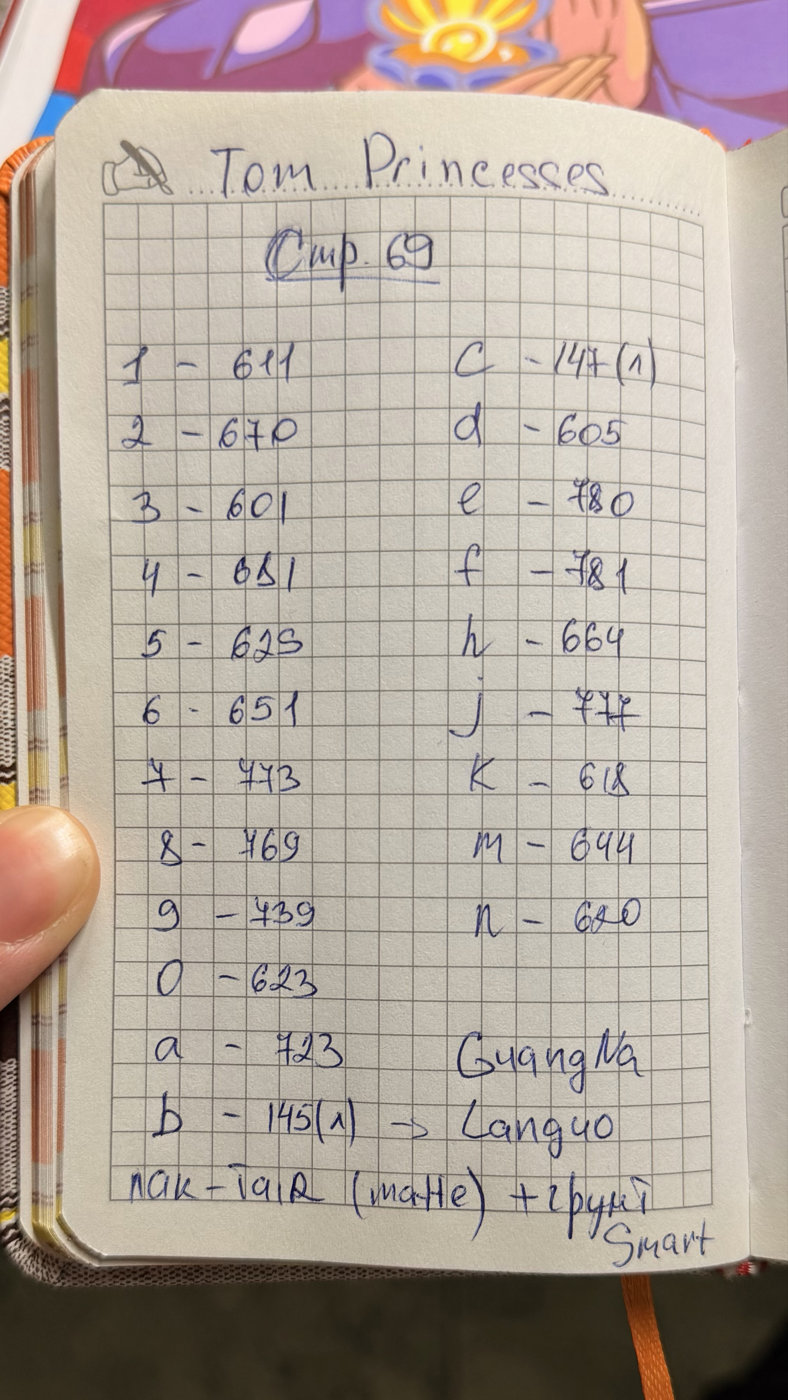 Tom Princesses
Стр. 69
1 - 611
2 - 670
3 - 601
4 - 681
5 - 625
6 - 651
7 - 773
8 - 769
9 - 739
0 - 623
a - 723
b - 145(1) → Languo
c - 147(1)
d - 605
e - 780
f - 781
h - 664
j - 777
k - 618
m - 644
n - 620
GuangNa
лак - TaiR (matte) + грунт
Smart